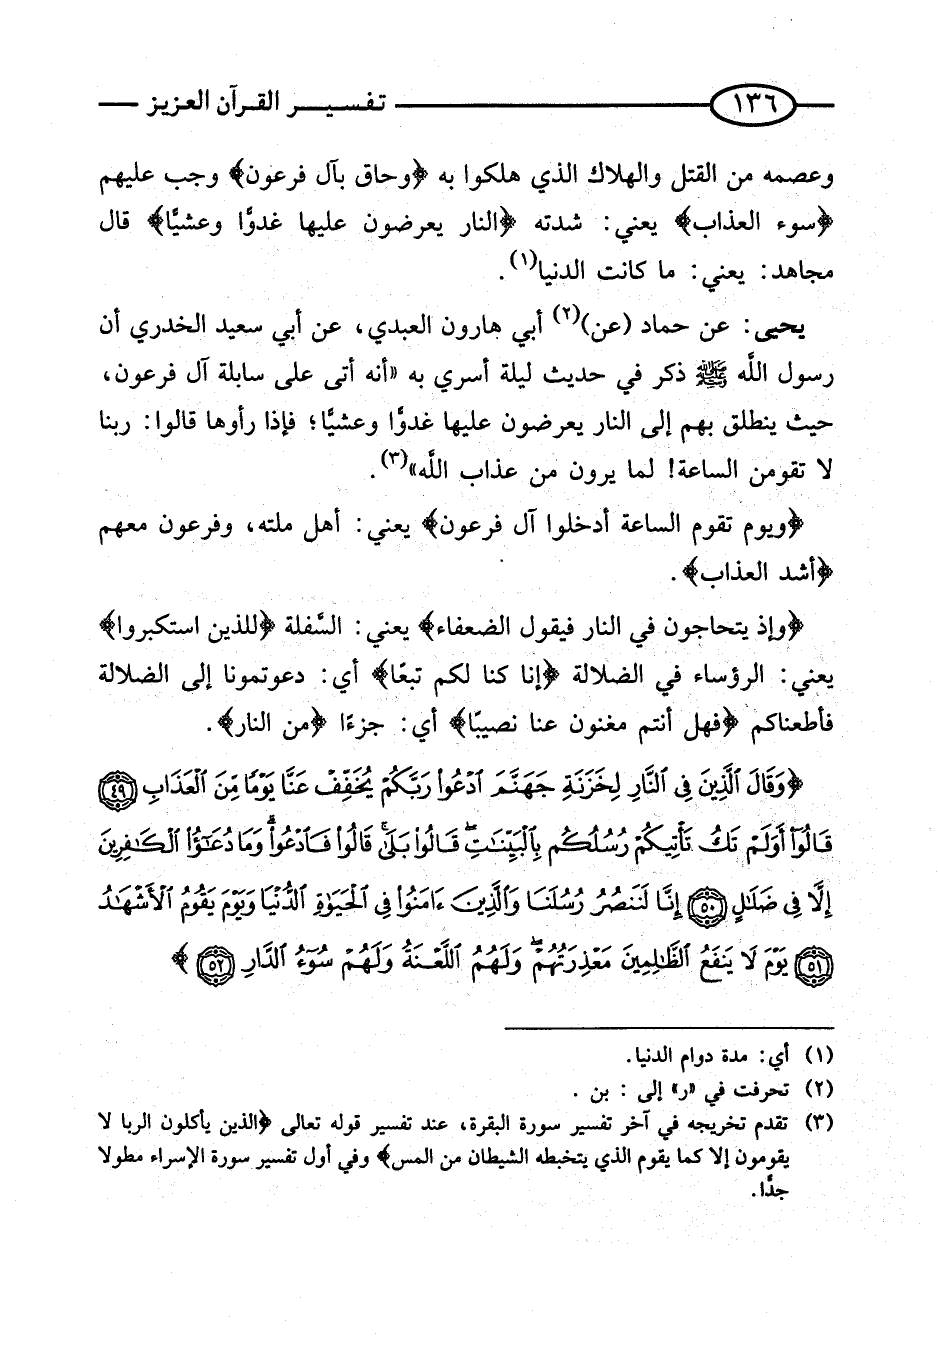 ١٣٦ تفسير القرآن العزيز
وعصمه من القتل والهلاك الذي هلكوا به ﴿وحاق بآل فرعون﴾ وجب عليهم
﴿سوء العذاب﴾ يعني: شدته ﴿النار يعرضون عليها غدوًّا وعشيًّا﴾ قال
مجاهد: يعني: ما كانت الدنيا(١).
يحيى: عن حماد (عن)(٢) أبي هارون العبدي، عن أبي سعيد الخدري أن
رسول اللَّه ﷺ ذكر في حديث ليلة أسري به «أنه أتى على سابلة آل فرعون،
حيث ينطلق بهم إلى النار يعرضون عليها غدوًّا وعشيًّا؛ فإذا رأوها قالوا: ربنا
لا تقومن الساعة! لما يرون من عذاب اللَّه»(٣).
﴿ويوم تقوم الساعة أدخلوا آل فرعون﴾ يعني: أهل ملته، وفرعون معهم
﴿أشد العذاب﴾.
﴿وإذ يتحاجون في النار فيقول الضعفاء﴾ يعني: السَّفلة ﴿للذين استكبروا﴾
يعني: الرؤساء في الضلالة ﴿إنا كنا لكم تبعًا﴾ أي: دعوتمونا إلى الضلالة
فأطعناكم ﴿فهل أنتم مغنون عنا نصيبًا﴾ أي: جزءًا ﴿من النار﴾.
﴿وَقَالَ ٱلَّذِينَ فِى ٱلنَّارِ لِخَزَنَةِ جَهَنَّمَ ٱدْعُوا۟ رَبَّكُمْ يُخَفِّفْ عَنَّا يَوْمًا مِّنَ ٱلْعَذَابِ ٤٩
قَالُوٓا۟ أَوَلَمْ تَكُ تَأْتِيكُمْ رُسُلُكُم بِٱلْبَيِّنَٰتِ ۖ قَالُوا۟ بَلَىٰ ۚ قَالُوا۟ فَٱدْعُوا۟ ۗ وَمَا دُعَٰٓؤُا۟ ٱلْكَٰفِرِينَ
إِلَّا فِى ضَلَٰلٍ ٥٠ إِنَّا لَنَنصُرُ رُسُلَنَا وَٱلَّذِينَ ءَامَنُوا۟ فِى ٱلْحَيَوٰةِ ٱلدُّنْيَا وَيَوْمَ يَقُومُ ٱلْأَشْهَٰدُ
٥١ يَوْمَ لَا يَنفَعُ ٱلظَّٰلِمِينَ مَعْذِرَتُهُمْ ۖ وَلَهُمُ ٱللَّعْنَةُ وَلَهُمْ سُوٓءُ ٱلدَّارِ ٥٢﴾
(١) أي: مدة دوام الدنيا.
(٢) تحرفت في «ر» إلى : بن .
(٣) تقدم تخريجه في آخر تفسير سورة البقرة، عند تفسير قوله تعالى ﴿الذين يأكلون الربا لا
يقومون إلا كما يقوم الذي يتخبطه الشيطان من المس﴾ وفي أول تفسير سورة الإسراء مطولا
جدًّا.